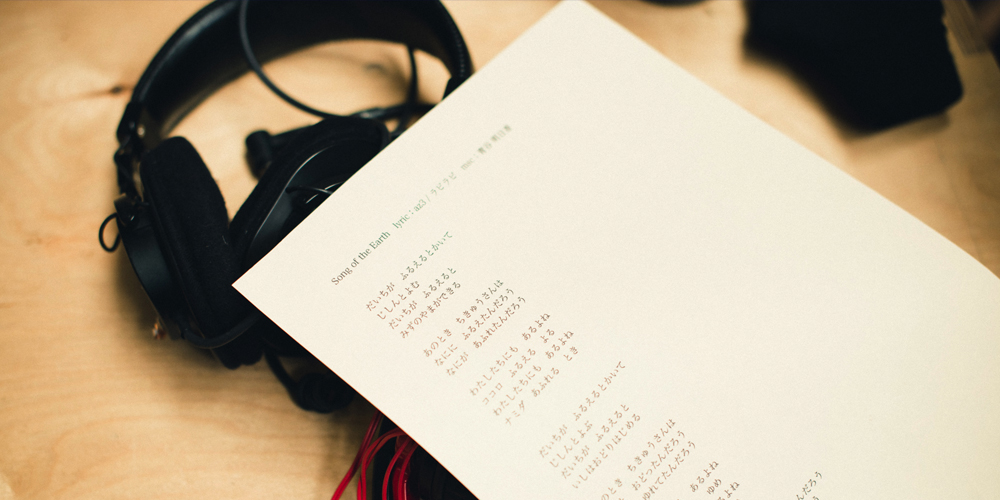 Song of the Earth lyric : az3 / ラビラビ
だいちが ふるえるとかいて
じしんとよむ
だいちが ふるえると
みずのやまができる
あのとき ちきゅうさんは
なにに ふるえたんだろう
なにが あふれたんだろう
わたしたちにも あるよね
ココロ ふるえる よる
わたしたちにも あるよね
ナミダ あふれる とき
だいちが ふるえるとかいて
じしんとよぶ
だいちが ふるえると
いしはおどりはじめる
のとき ちきゅうさんは
おどったんだろう
ゆれてたんだろう
あるよね
ゆめ
るよね
んだろう